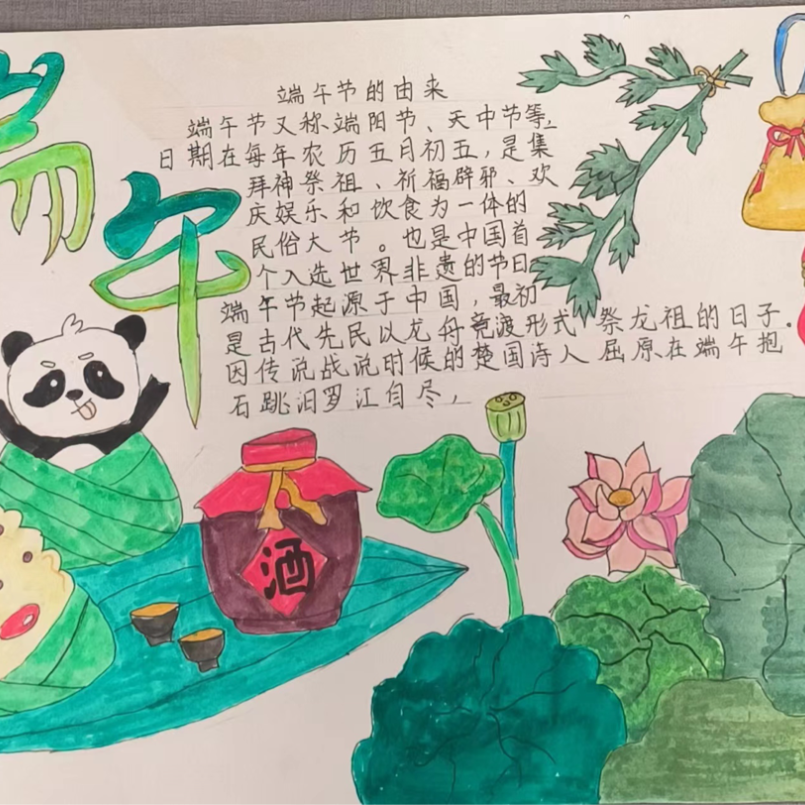 端午
端午节的由来
端午节又称端阳节、天中节等,
日期在每年农历五月初五,是集
拜神祭祖、祈福辟邪、欢
庆娱乐和饮食为一体的
民俗大节。也是中国首
个入选世界非遗的节日。
端午节起源于中国,最初
是古代先民以龙舟竞渡形式祭龙祖的日子.
因传说战说时候的楚国诗人屈原在端午抱
石跳汨罗江自尽,
酒